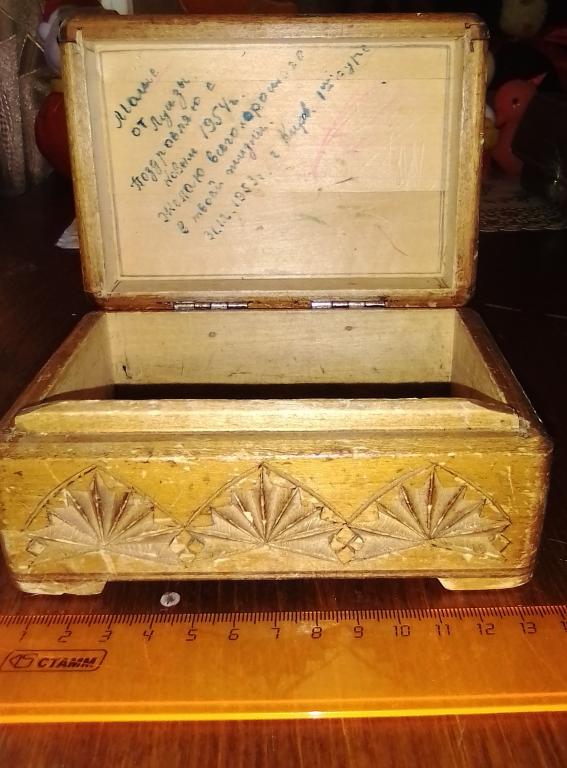 Мáше
от Луизы
Поздравляю с
новым 1954г.
Желаю всего хорошего
в твоей жизни.
31.12.1953г. г. Киров
1 2 3 4 5 6 7 8 9 10 11 12 13
СТАММ